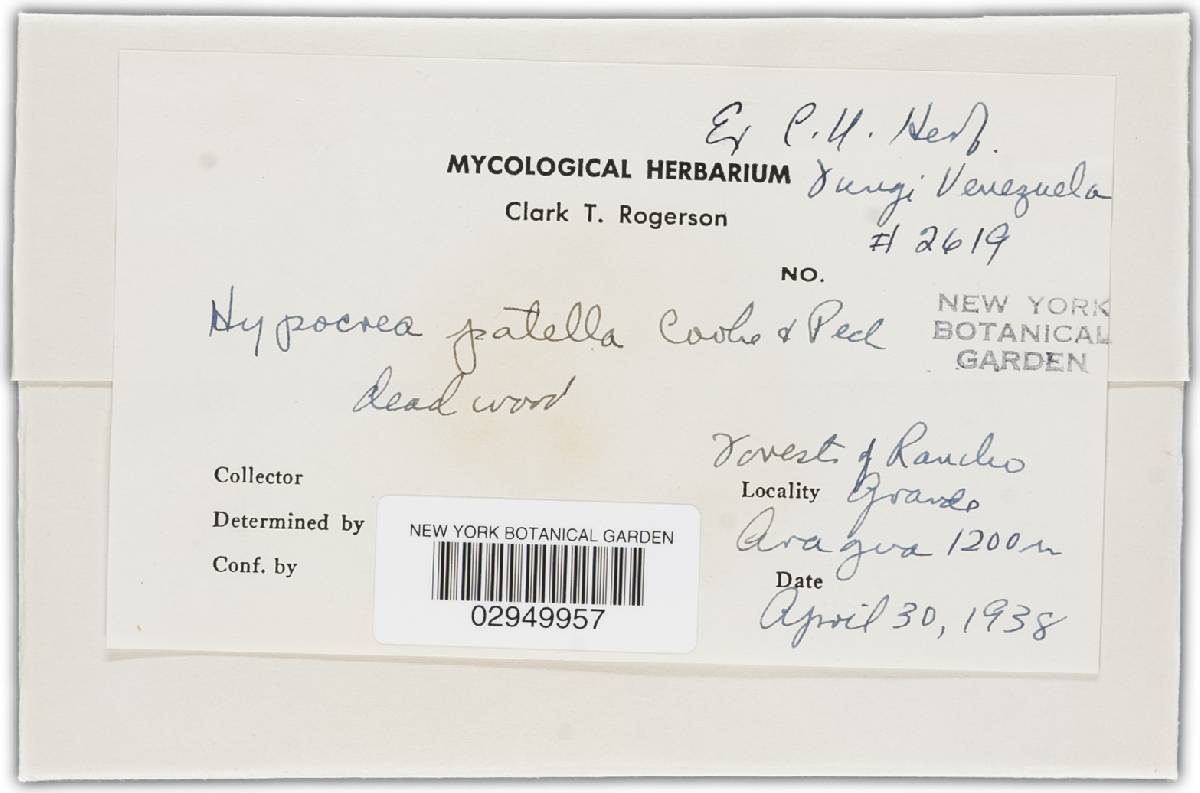 Ex C.U. Herb.
MYCOLOGICAL HERBARIUM Fungi Venezuela
Clark T. Rogerson
# 2619
NO.
Hypocrea patella Cooke & Peck
NEW YORK
BOTANICAL
GARDEN
dead wood
Forests of Rancho
Collector
Locality Grande
Determined by
Aragua 1200 m
Conf. by
Date
April 30, 1938
NEW YORK BOTANICAL GARDEN
02949957